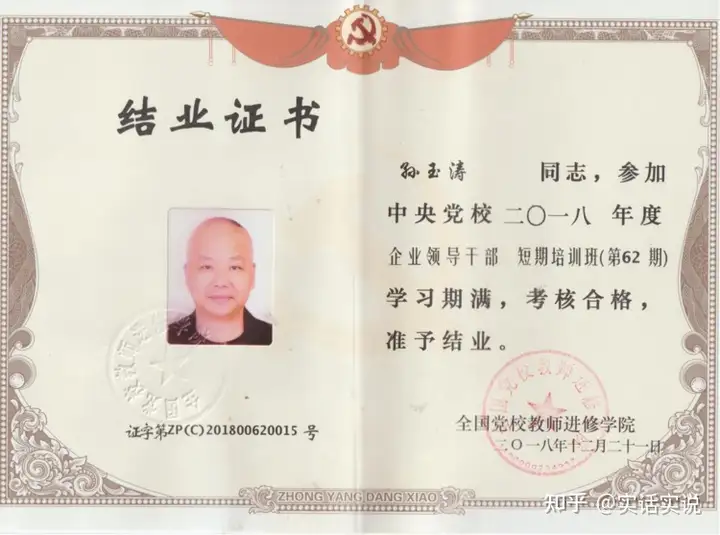 结业证书
孙玉涛 同志，参加
中央党校二〇一八 年度
企业领导干部 短期培训班(第62 期)
学习期满，考核合格，
准予结业。
证字第ZP(C)201800620015 号
全国党校教师进修学院
二〇一八年十二月二十一日
ZHONG YANG DANG XIAO
知乎 @实话实说